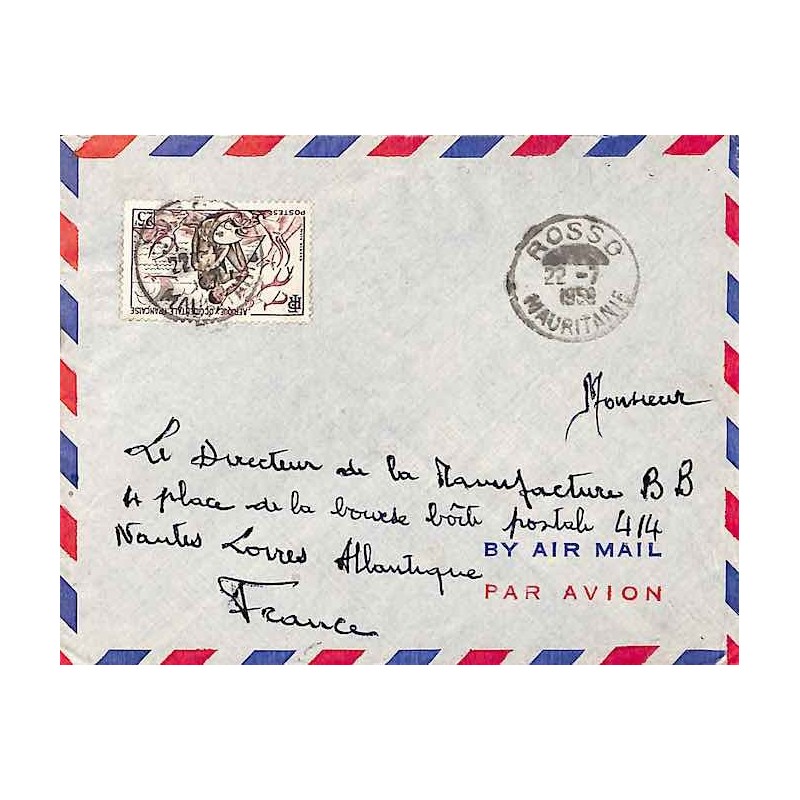 25
POSTES
RF
AFRIQUE OCCIDENTALE FRANÇAISE
ROSSO
22 -7
1958
MAURITANIE
Monsieur
Le Directeur de la Manufacture B B
4 place de la bourse boîte postale 414
Nantes Loires Atlantique
France
BY AIR MAIL
PAR AVION